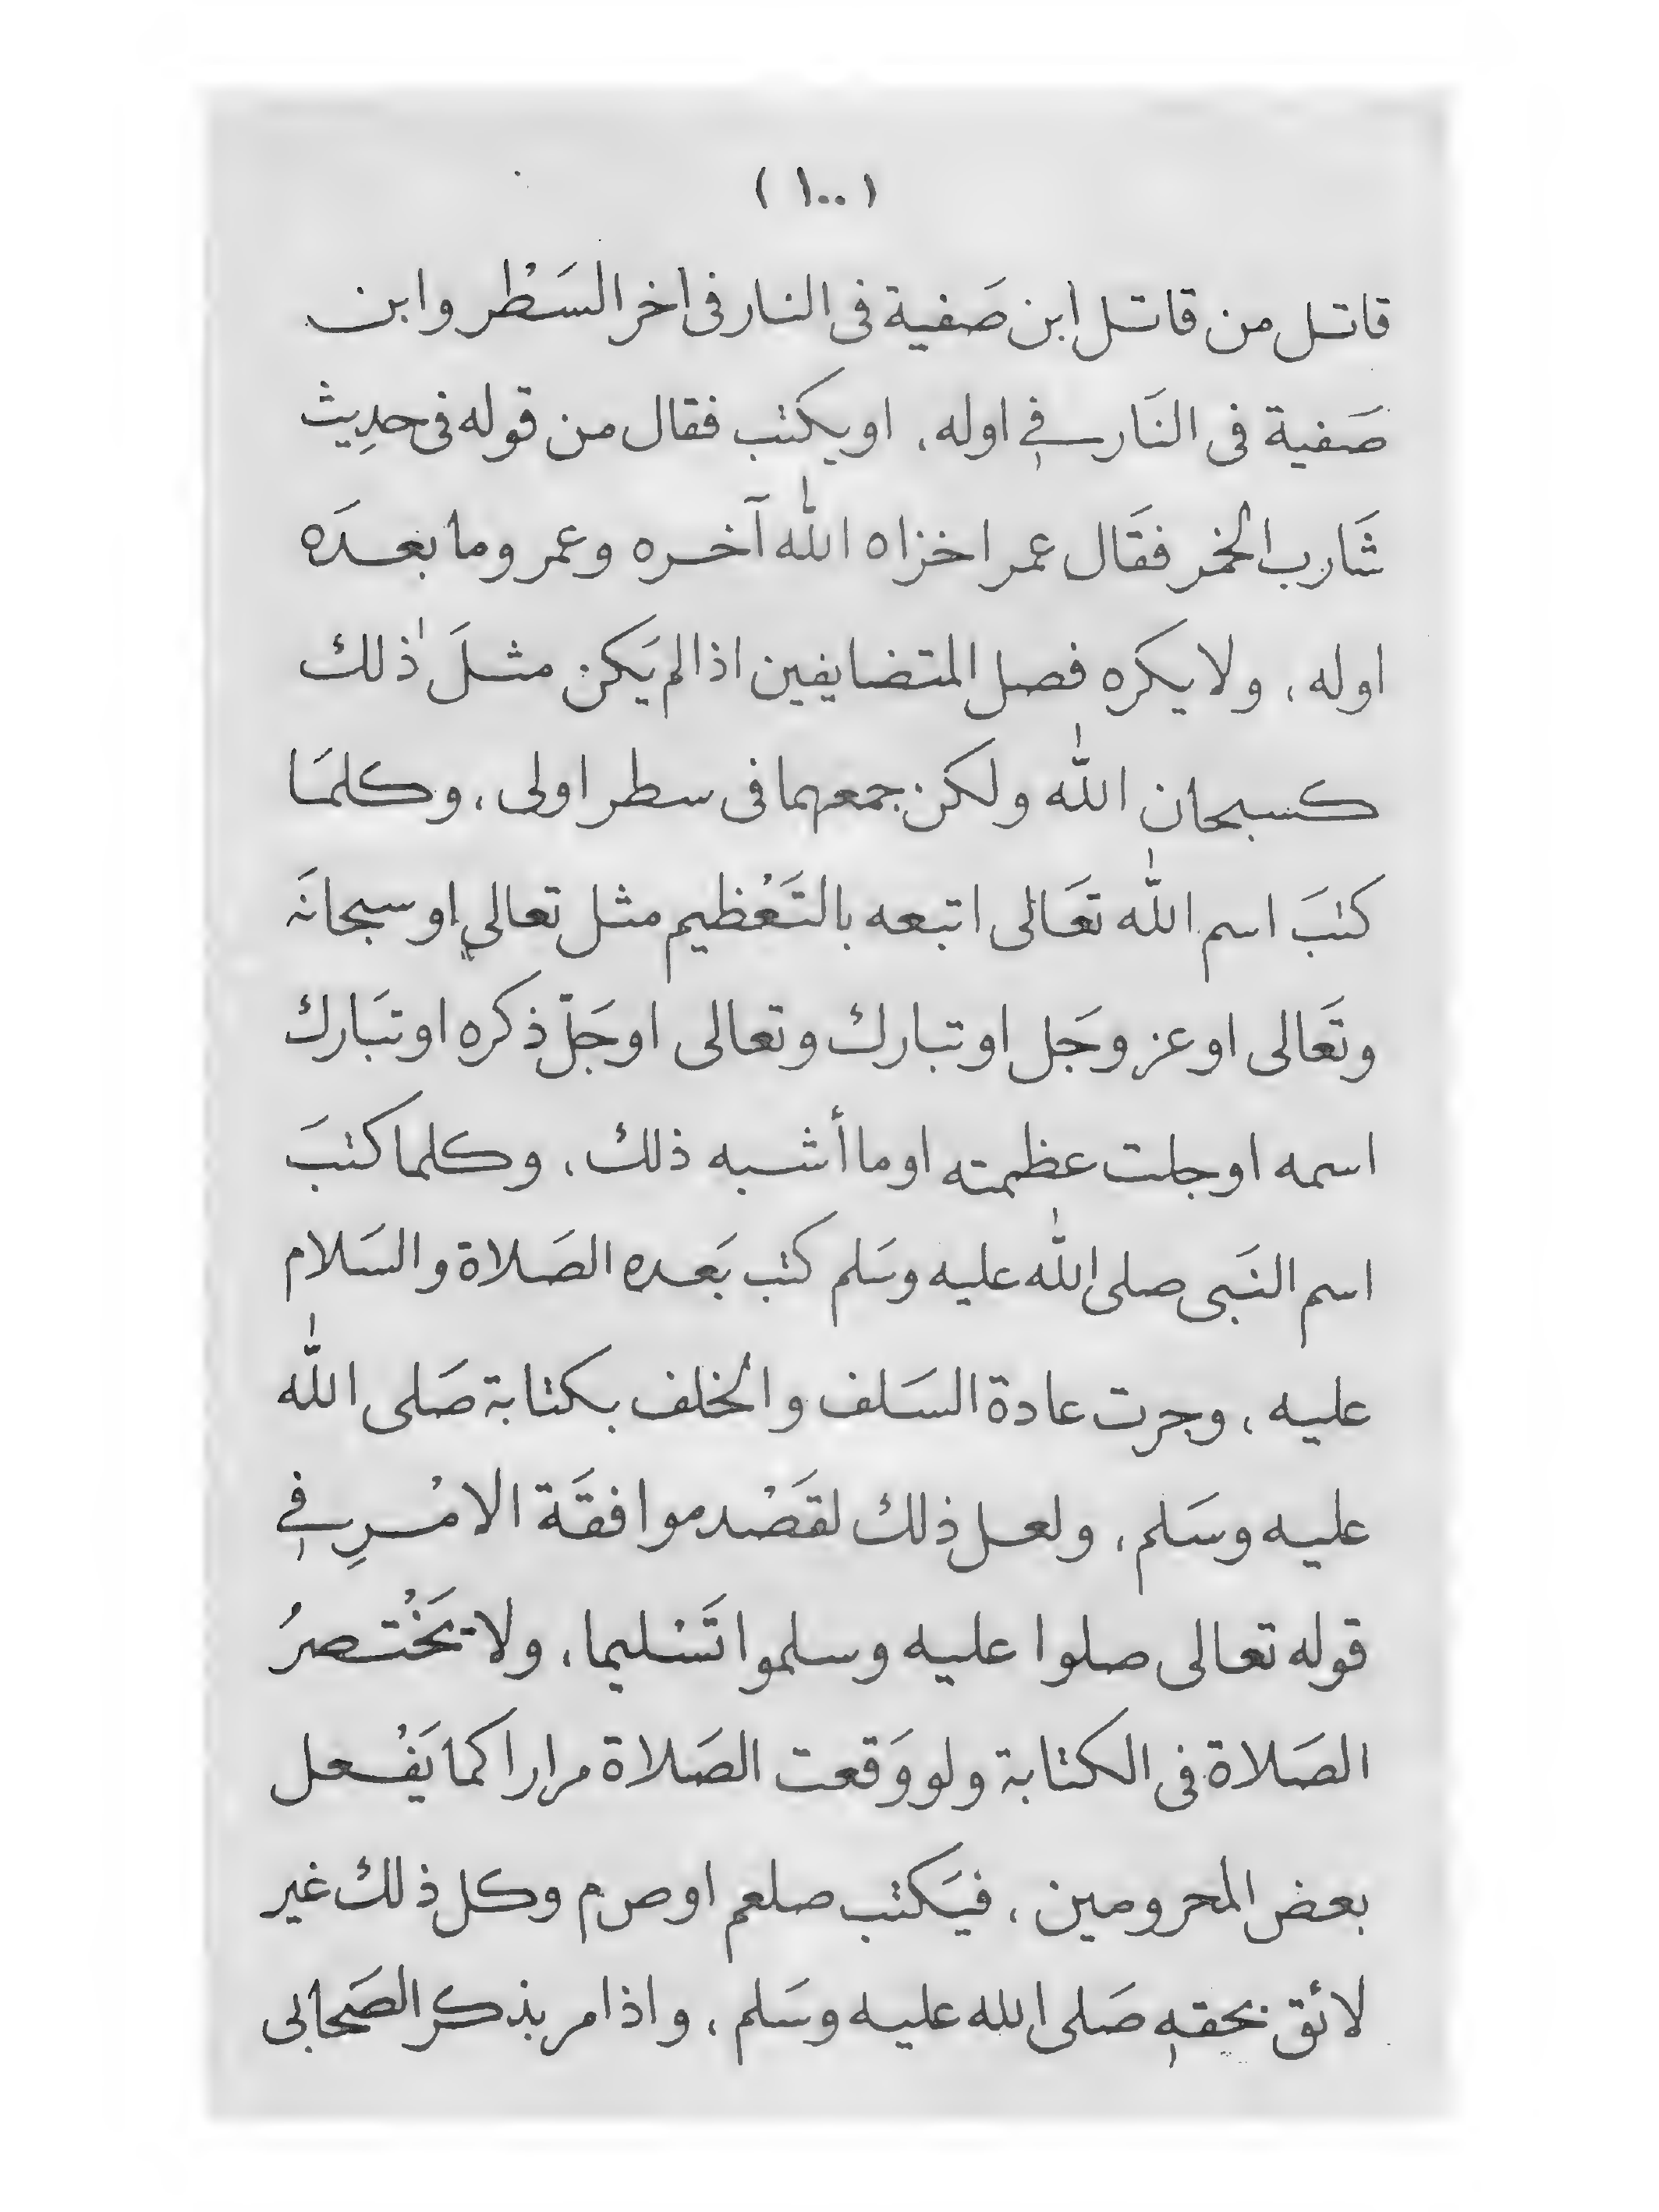 ( ١٠٠ )
قاتل من قاتل ابن صَفية فى النار فى اخر السَطْر وابن
صَفية فى النَار في اوله، او يكتب فقال من قوله فى حدِيث
شَارب الخمر فقَال عمر اخزاه الله آخره وعمر وما بعدَه
اوله، ولا يكره فصل المتضايفين اذا لم يَكن مثلَ ذٰلك
كسبحان الله ولكن جمعهما فى سطر اولى، وكلمَا
كتبَ اسم الله تعَالى اتبعه بالتَعْظيم مثل تعالى او سبحانَه
وتعَالى او عز وجَل او تبارك وتعالى او جَلّ ذكره او تبَارك
اسمه او جلت عظمته او ما أشبه ذلك، وكلما كتبَ
اسم النَبى صلى الله عليه وسَلم كتب بَعده الصَلاة والسَلام
عليه، وجرت عادة السَلف والخلف بكتابة صَلى الله
عليه وسَلم، ولعل ذلك لقصْد موافقَة الامْرِ في
قوله تعالى صلوا عليه وسلموا تَسْليما، ولا تخْتَصرُ
الصَلاة فى الكتابة ولو وَقعت الصَلاة مرارا كما يَفْعل
بعض المحرومين، فيَكتب صلعم او ص م وكل ذلك غير
لائق بحقهٖ صَلى الله عليه وسَلم، واذا مر بذكر الصَحابى